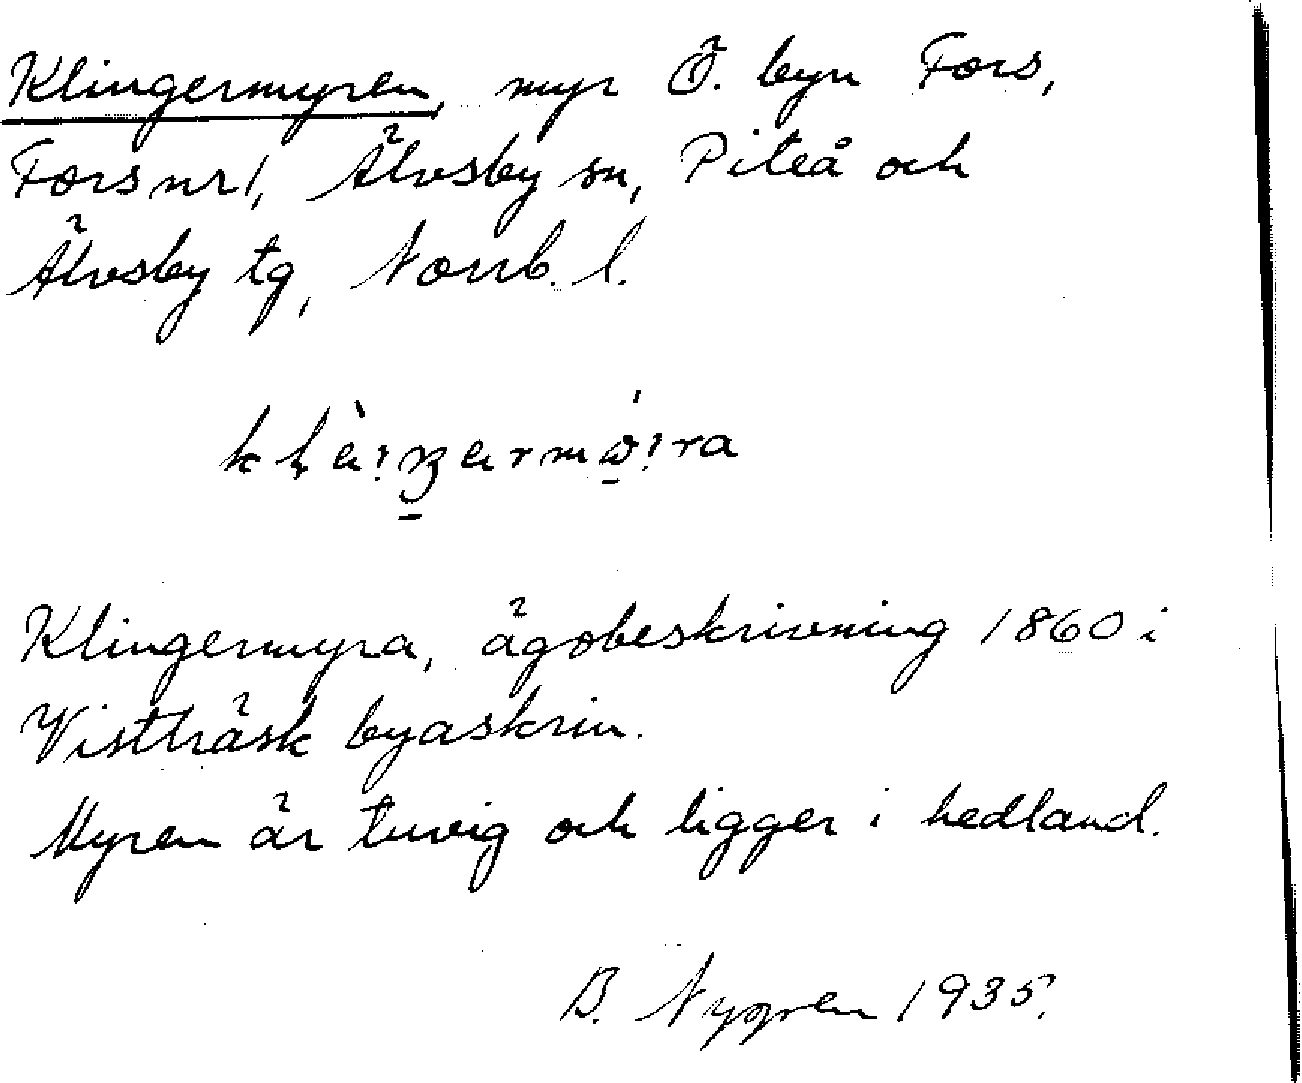 Klingermyren, myr Ö. byn Fors,
Fors nr 1, Älvsby sn, Piteå och
Älvsby tg, Norrb. l.
Klingermyra, ägobeskrivning 1860 i
Vistträsk byaskrin.
Myren är tuvig och ligger i hedland.
B. Nygren 1935.